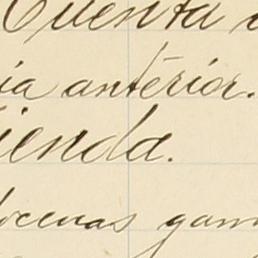 Cuenta
ia anterior.
ienda.
docenas gam